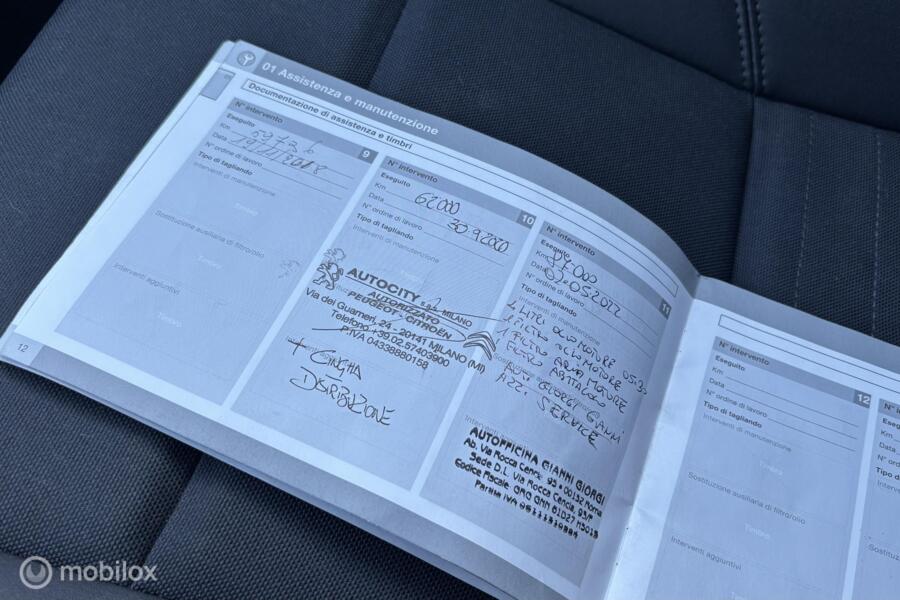 01 Assistenza e manutenzione
Documentazione di assistenza e timbri
N° intervento 9
Eseguito
Km 59736
Data
N° ordine di lavoro
Tipo di tagliando
Interventi di manutenzione
Timbro
Sostituzione ausiliaria di filtro/olio
Timbro
Interventi aggiuntivi
Timbro
12
N° intervento 10
Eseguito
Km 62000
Data 30.9.2020
N° ordine di lavoro
Tipo di tagliando
Interventi di manutenzione
AUTOCITY MILANO
AUTORIZZATO
PEUGEOT - CITROËN
Via dei Guarneri, 24 - 20141 MILANO (MI)
Telefono +39.02.57403900
P.IVA 04338880158
+ CINGHIA
DISTRIBUZIONE
N° intervento 11
Eseguito
Km
Data
N° ordine di lavoro
Tipo di tagliando
Interventi di manutenzione
4 LITRI OLIO MOTORE 05.30
1 FILTRO OLIO MOTORE
1 FILTRO ARIA MOTORE
FILTRO ABITACOLO
GIORGI GIANNI
SERVICE
AUTOFFICINA GIANNI GIORGI
Ab. Via Rocca Cencia 93 • 00132 Roma
Sede D.L. Via Rocca Cencia, 93/F
Codice Fiscale GRG GNN 61D27 H501S
Partita IVA
N° intervento 12
Eseguito
Km
Data
N° ordine di lavoro
Tipo di tagliando
Interventi di manutenzione
Timbro
Sostituzione ausiliaria di filtro/olio
Timbro
Interventi aggiuntivi
Timbro
mobilox